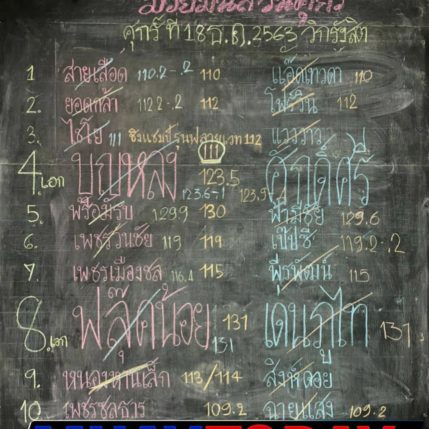 ศุกร์ ที่ 18 ธ.ค. 2563 วิกรังสิต
1 สายเลือด 110.2-.2 110 แอ๊ดเทวดา 110
2. ยอดกล้า 112.2-.2 112 โฟร์วิน 112
3. ไชโย 111 ชิงแชมป์รุ่นฟลายเวท 112 แวววาว
4. เอก บุญหลง 123.6-1 123.5 ศักดิ์ศรี 123.9
5. พร้อมรบ 129.9 130 ฟ้ามีชัย 129.6
6. เพชรวันชัย 119 119 เป๊ปซี่ 119.2-.2
7. เพชรเมืองชล 116.4 115 พีรพัฒน์ 115
8. เอก ฟลุ๊คน้อย 131 131 เด่นภูไท 131
9. หนองหานเล็ก 113/114 สิงห์ดอย
10. เพชรชลธาร 109.2 ฉายแสง 109.2